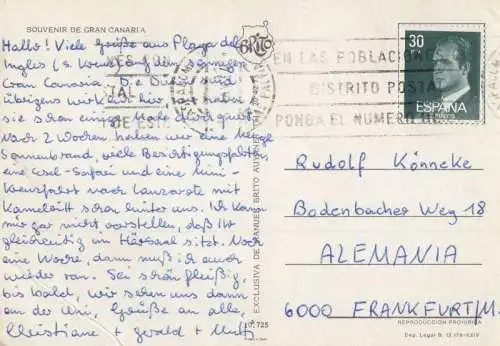 SOUVENIR DE GRAN CANARIA
Hallo! Viele Grüße aus Playa del
Ingles (s. Kreuz) auf dem sonnigen
Gran Canaria. Die
übrigens wir hier, + haben
sie schon einige Male durchquert
Nach 2 Wochen haben wir eine Menge
Sonnenbrand, viele Besichtigungsfahrten,
eine Esel-Safari und eine Mini-
Kreuzfahrt nach Lanzarote mit
Kamelritt schon hinter uns. Ich kann
mir gar nicht vorstellen, daß Ihr
gleichzeitig im Hörsaal sitzt. Noch
eine Woche, dann muß ich auch
wieder ran. Sei schön fleißig,
bis bald, wir sehen uns dann
an der Uni, Grüße an alle,
Christiane + Gerald + Mutti
BRITO
EXCLUSIVA DE MANUEL BRITO AUYANET
725
EN LAS POBLACIONE
DISTRITO POSTAL
PONGA EL NUMERO DE
TAL
ESTE
30
PTA
ESPAÑA
CORREOS
Rudolf Könneke
Bodenbacher Weg 18
ALEMANIA
6000 FRANKFURT/M.
REPRODUCCION PROHIBIDA
Dep. Legal B.